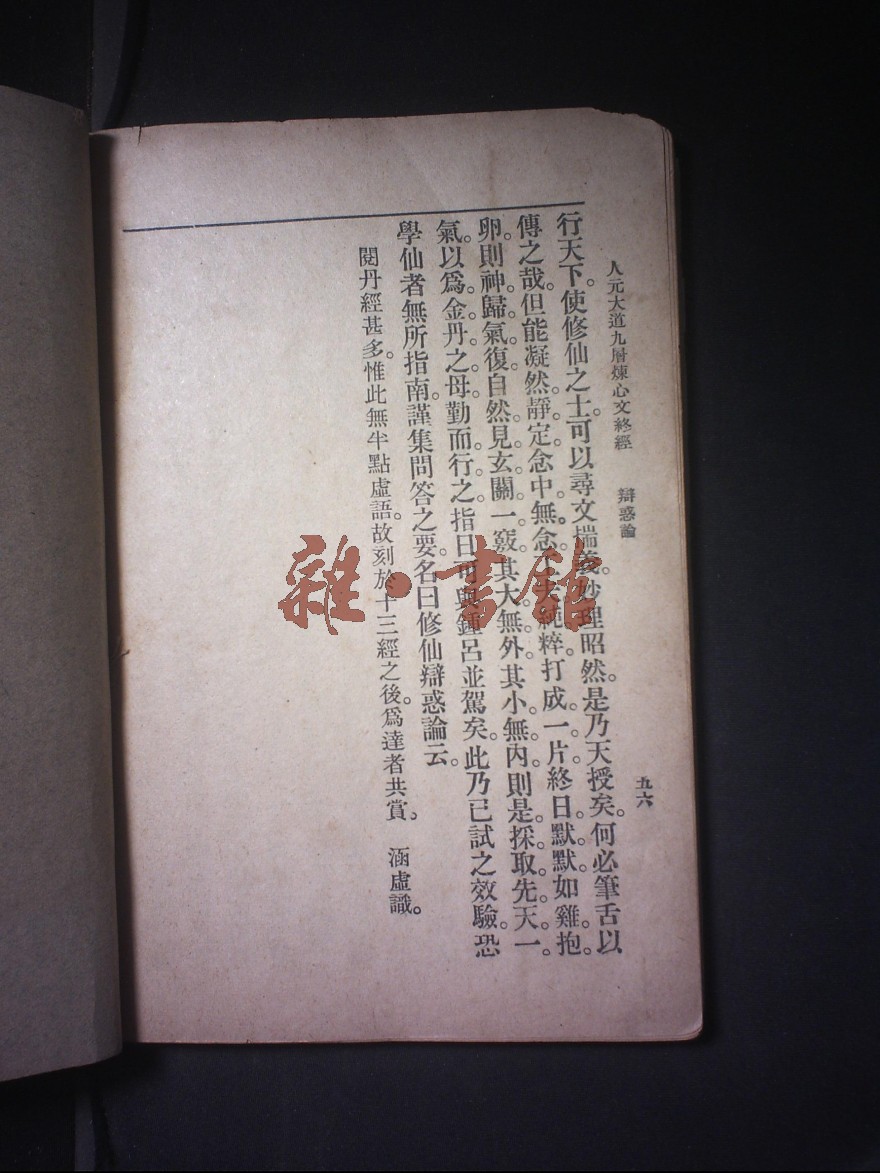 人元大道九層煉心文終經 辯惑論 五六
行天下。使修仙之士。可以尋文揣義。妙理昭然。是乃天授矣。何必筆舌以
傳之哉。但能凝然靜定。念中無念。工夫純粹。打成一片。終日默默。如雞抱
卵。則神歸氣復。自然見玄關一竅。其大無外。其小無內。則是採取先天一
氣。以爲金丹之母。勤而行之。指日可與鍾呂並駕矣。此乃已試之效驗。恐
學仙者無所指南。謹集問答之要。名曰修仙辯惑論云。
閱丹經甚多。惟此無半點虛語。故刻於十三經之後。爲達者共賞。 涵虛識。
雜·書館